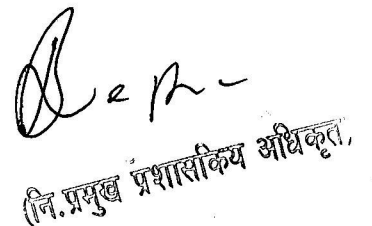 (नि.प्रमुख प्रशासकिय अधिकृत.